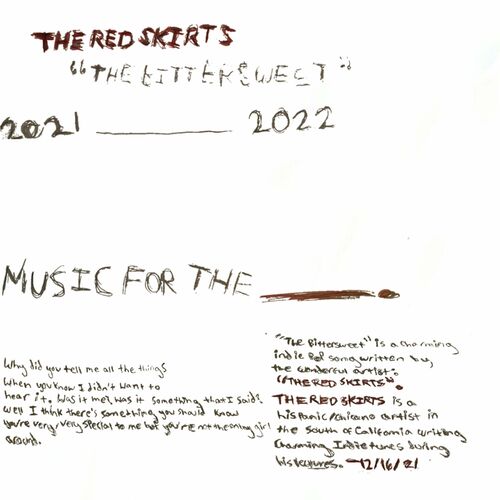 THE RED SKIRTS
"THE BITTERSWEET"
2021 ———— 2022
MUSIC FOR THE ————.
Why did you tell me all the things
When you know I didn't want to
hear it. Was it me? was it something that I said?
Well I think there's something you should know
you're very very special to me but you're not the only girl
around.
"The Bittersweet" is a charming
indie song written by,
the wonderful artist:
"THE RED SKIRTS".
THE RED SKIRTS is a
hispanic/chicano artist in
the south of California writing
Charming Indie tunes during
his lectures. -12/16/21